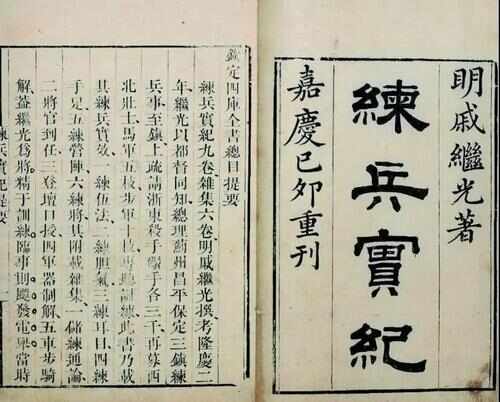 明戚繼光著
練兵實紀
嘉慶己卯重刊
欽定四庫全書總目提要
練兵實紀九卷雜集六卷明戚繼光撰考隆慶二
年繼光以都督同知總理薊州昌平保定三鎮練
兵事至鎮上疏請浙東殺手手各三千再募西
北壯士馬軍五枝步軍十枝專聽訓練此書乃載
其練兵實效練伍法二練膽氣三練耳目四練
手足五練營陣六練將其附載雜集一儲練通論
二將官到任三登壇口授四軍器制解五車步騎
解蓋繼光爲將精于訓練臨事則飈發電舉當時
練兵實紀提要